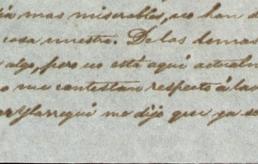 mas miserables, no han d
cosa nuestra. De las demas
algo, pero no está aquí actualm
me contestan respecto á la
me dijo que ya se